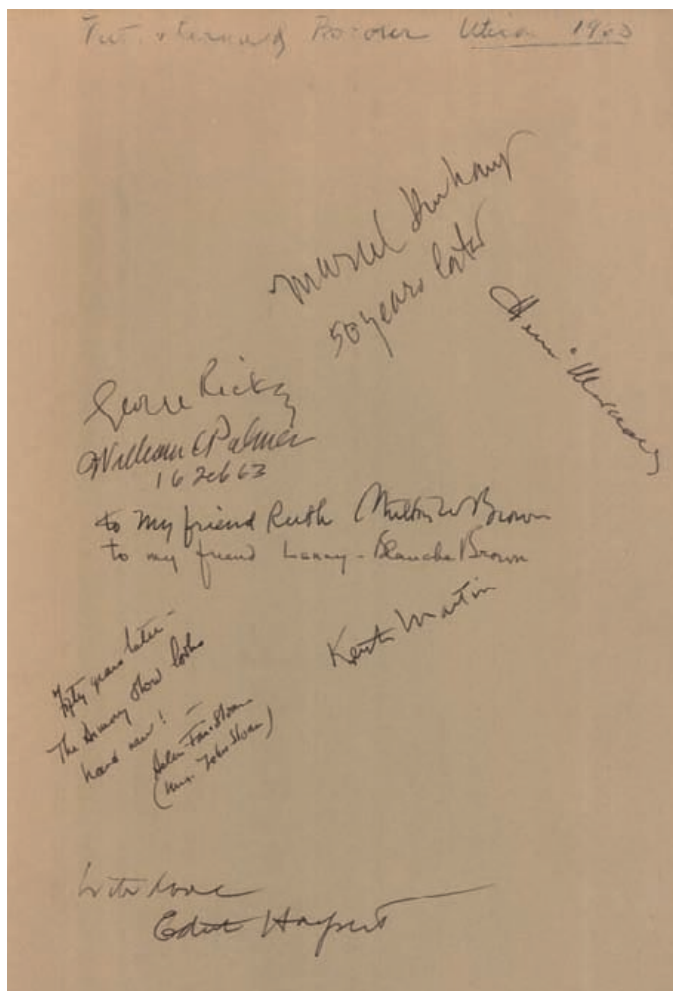 Utica 1963
Marcel Duchamp
50 years later
Henri Marceau
George Rickey
William C Palmer
16 Feb 63
to my friend Ruth Milton W Brown
to my friend Lanny - Blanche Brown
Keith Martin
Fifty years later -
The Armory Show looks
brand new! -
Helen Farr Sloan
(Mrs. John Sloan)
with love
Edith Halpert